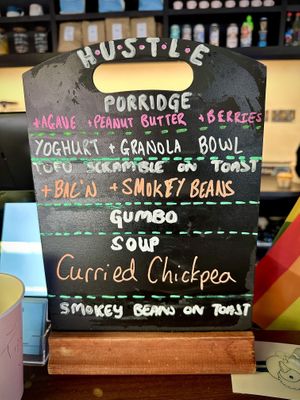 H·U·S·T·L·E
PORRIDGE
+AGAVE +PEANUT BUTTER +BERRIES
YOGHURT + GRANOLA BOWL
TOFU SCRAMBLE ON TOAST
+ BAC'N + SMOKEY BEANS
GUMBO
SOUP
Curried Chickpea
SMOKEY BEANS ON TOAST